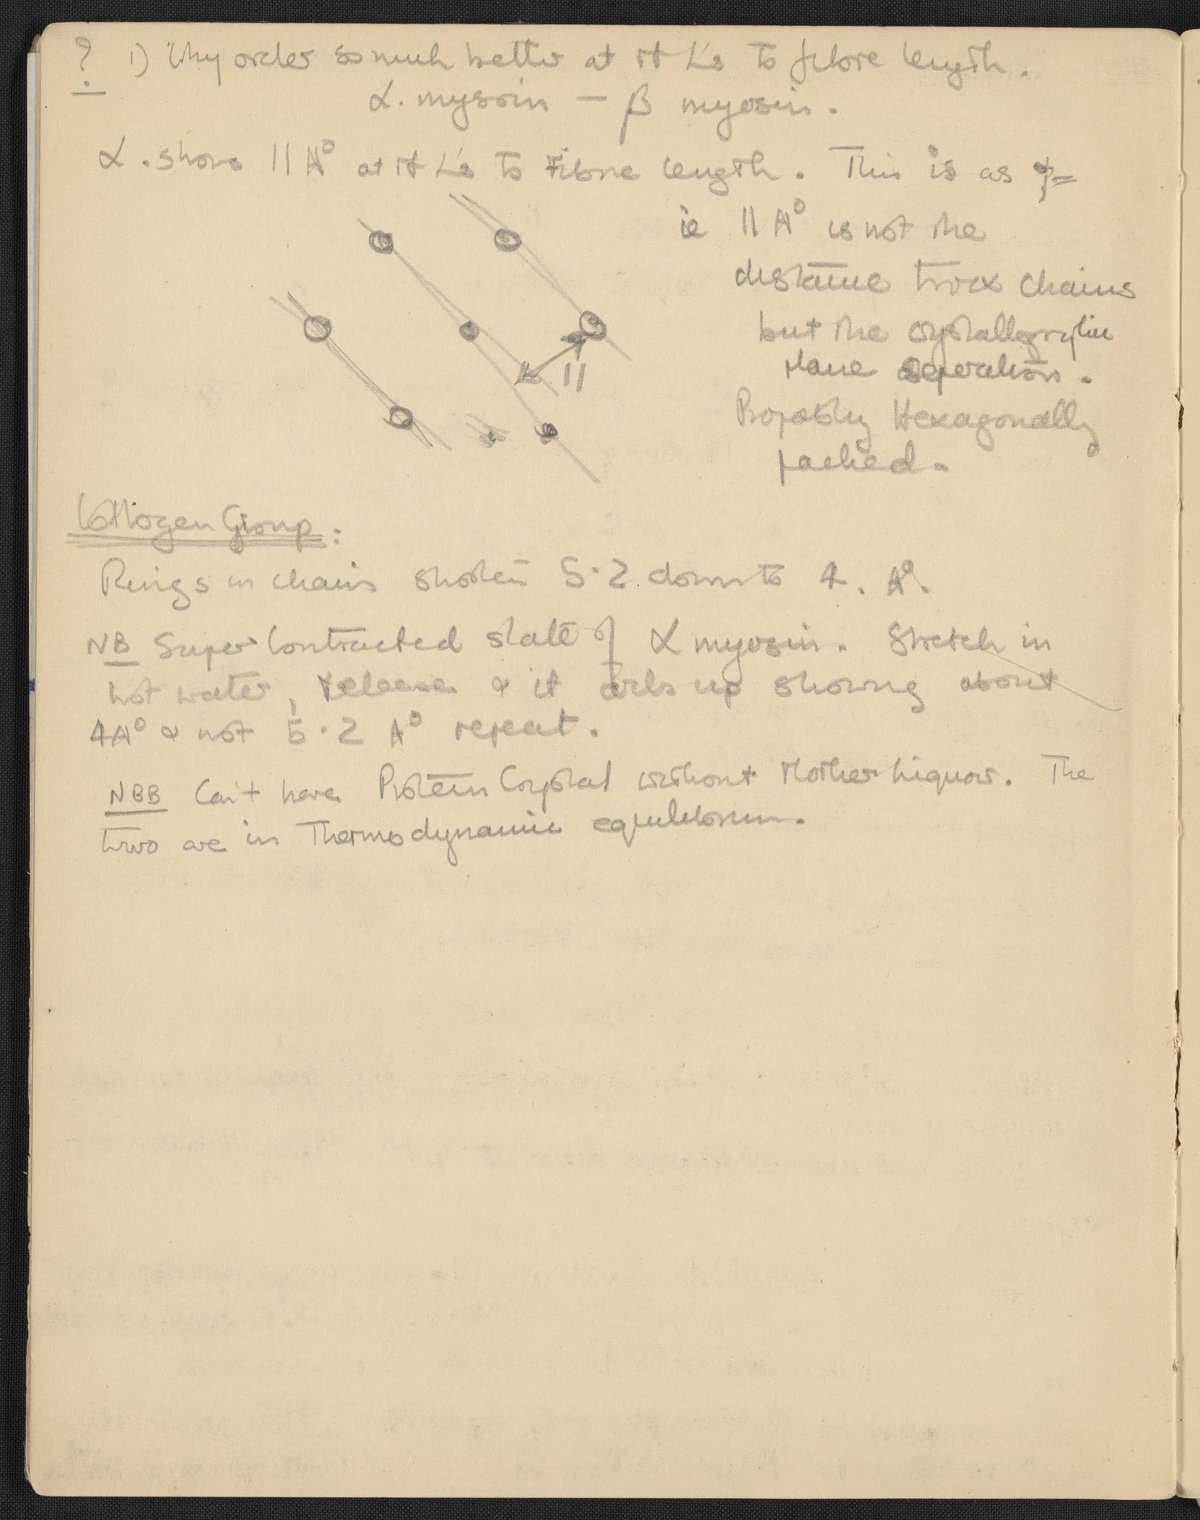 ? 1) Why order so much better at rt L's to fibre length.
α. mysoin - β myosin.
α. shows 11 A° at rt L's to Fibre length. This is as
ie 11 A° is not the
distance twix chains
but the crystallographic
plane seperation.
Propably Hexagonally
packed.
11
Collogen Group:
Rings in chain shorten 5.2 down to 4. A°.
NB Super Contracted state of α myosin. Stretch in
hot water, release & it curls up showing about
4A° & not 5.2 A° repeat.
NBB Can't have Protein Crystal without Mother Liquor. The
two are in Thermodynamic equilibrium.